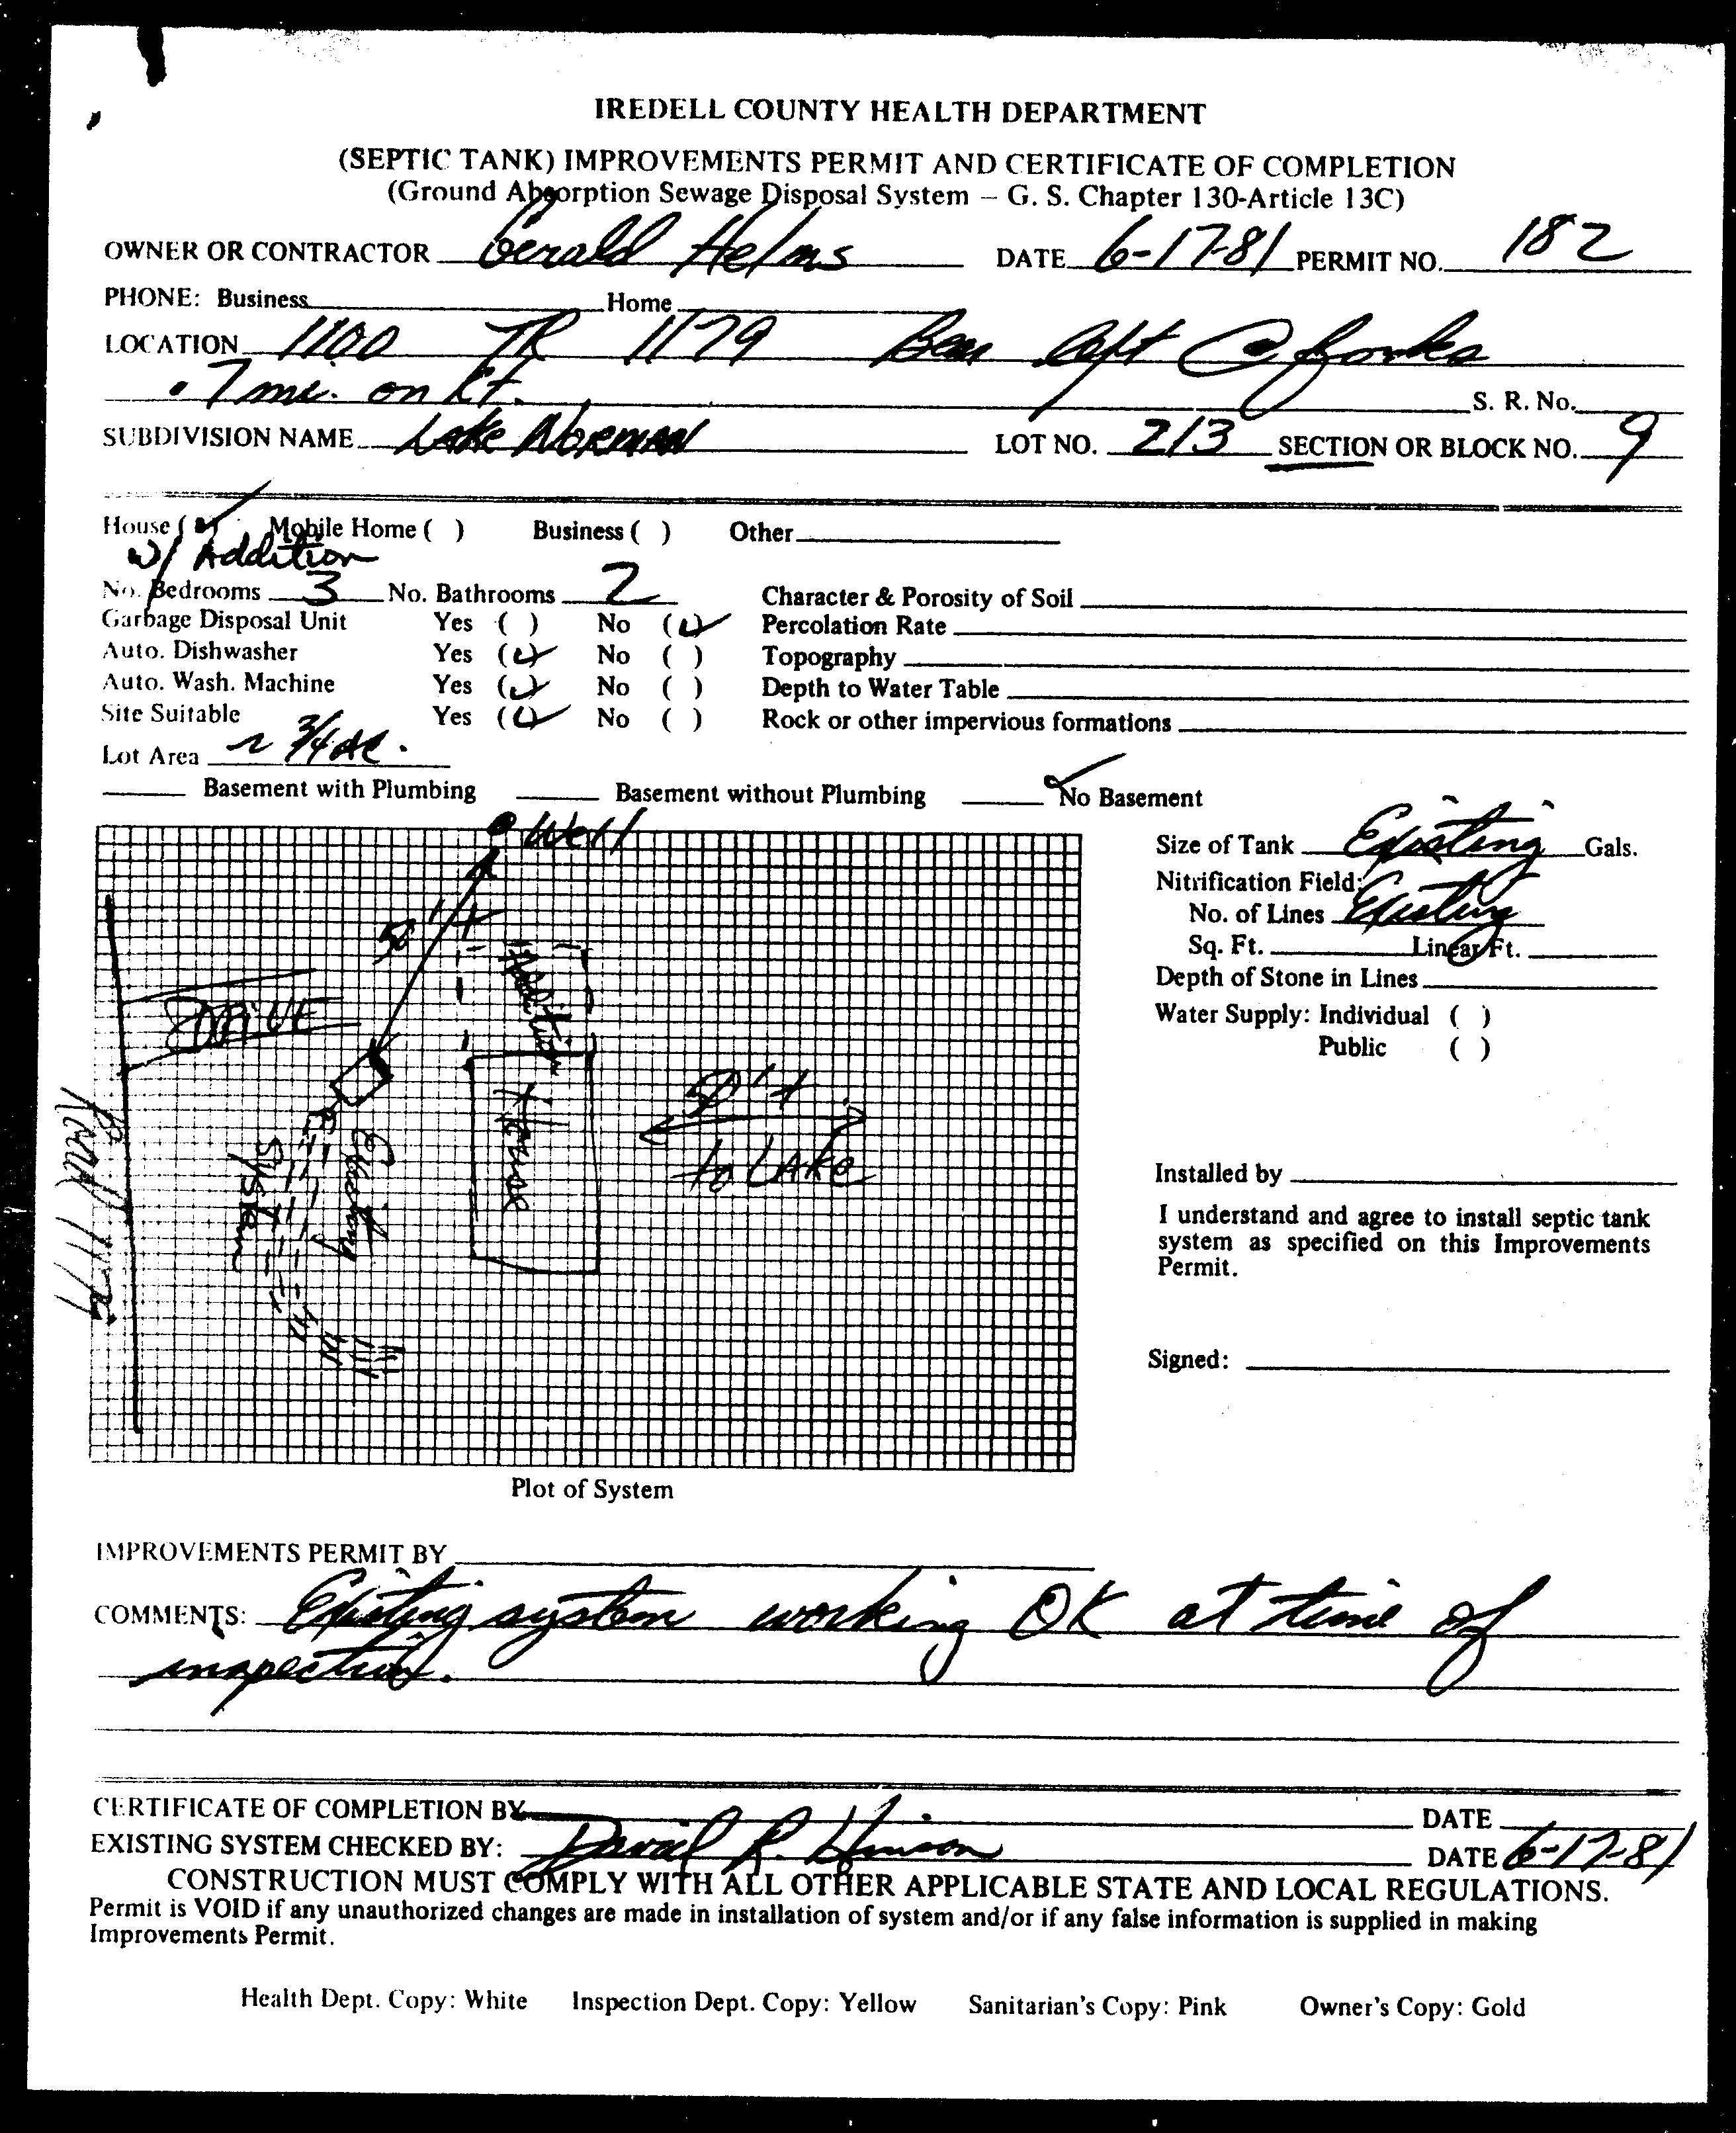 IREDELL COUNTY HEALTH DEPARTMENT
(SEPTIC TANK) IMPROVEMENTS PERMIT AND CERTIFICATE OF COMPLETION
(Ground Absorption Sewage Disposal System – G. S. Chapter 130-Article 13C)
OWNER OR CONTRACTOR Gerald Helms DATE 6-17-81 PERMIT NO. 182
PHONE: Business Home
LOCATION 1100 TR 1179 Bear left @ forks
.7 mi. on Rt. S. R. No.
SUBDIVISION NAME Lake Norman LOT NO. 213 SECTION OR BLOCK NO. 9
House (✓) Mobile Home ( ) Business ( ) Other
w/ Addition
No. Bedrooms 3 No. Bathrooms 2 Character & Porosity of Soil
Garbage Disposal Unit Yes ( ) No (✓) Percolation Rate
Auto. Dishwasher Yes (✓) No ( ) Topography
Auto. Wash. Machine Yes (✓) No ( ) Depth to Water Table
Site Suitable Yes (✓) No ( ) Rock or other impervious formations
Lot Area ~ 3/4 Ac.
Basement with Plumbing Basement without Plumbing ✓ No Basement
Well
50'+
Addition
DRIVE
House
50'+
to LAKE
Existing
System
Road 1179
Size of Tank Existing Gals.
Nitrification Field:
No. of Lines Existing
Sq. Ft. Linear Ft.
Depth of Stone in Lines
Water Supply: Individual ( )
Public ( )
Installed by
I understand and agree to install septic tank
system as specified on this Improvements
Permit.
Signed:
Plot of System
IMPROVEMENTS PERMIT BY
COMMENTS: Existing system working OK at time of
inspection.
CERTIFICATE OF COMPLETION BY DATE
EXISTING SYSTEM CHECKED BY: David R. Hinson DATE 6-17-81
CONSTRUCTION MUST COMPLY WITH ALL OTHER APPLICABLE STATE AND LOCAL REGULATIONS.
Permit is VOID if any unauthorized changes are made in installation of system and/or if any false information is supplied in making
Improvements Permit.
Health Dept. Copy: White Inspection Dept. Copy: Yellow Sanitarian's Copy: Pink Owner's Copy: Gold